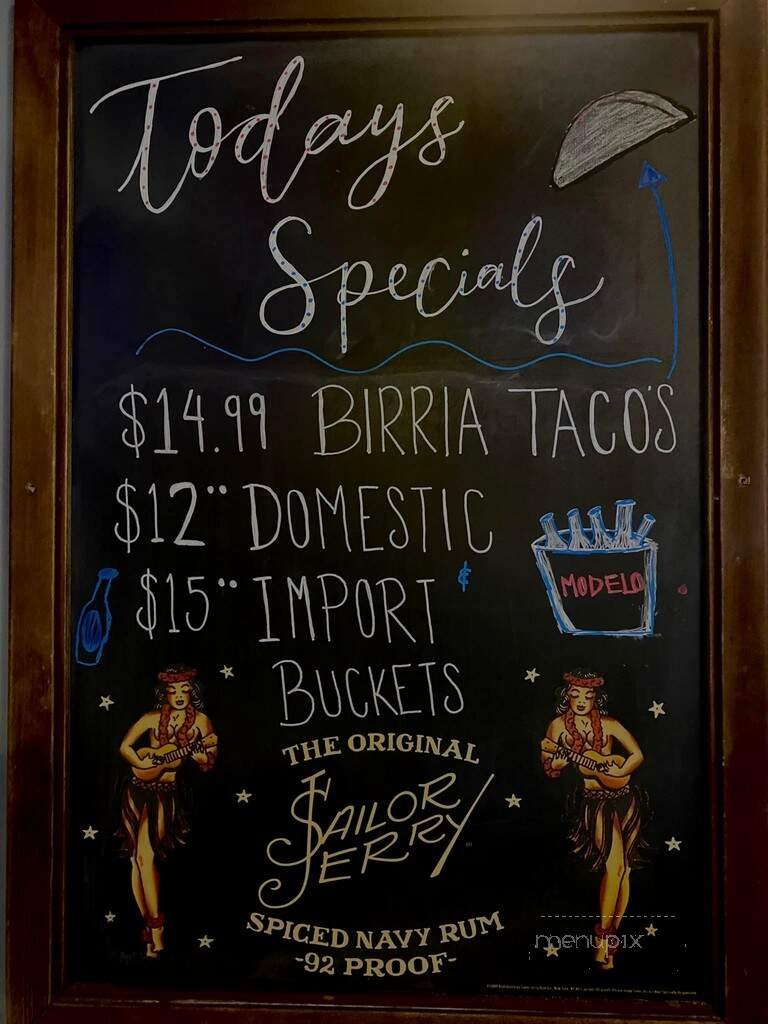 Todays
Specials
$14.99 BIRRIA TACO'S
$12¨ DOMESTIC
$15¨ IMPORT &
BUCKETS
MODELO
THE ORIGINAL
SAILOR
JERRY
SPICED NAVY RUM
-92 PROOF-
menupix